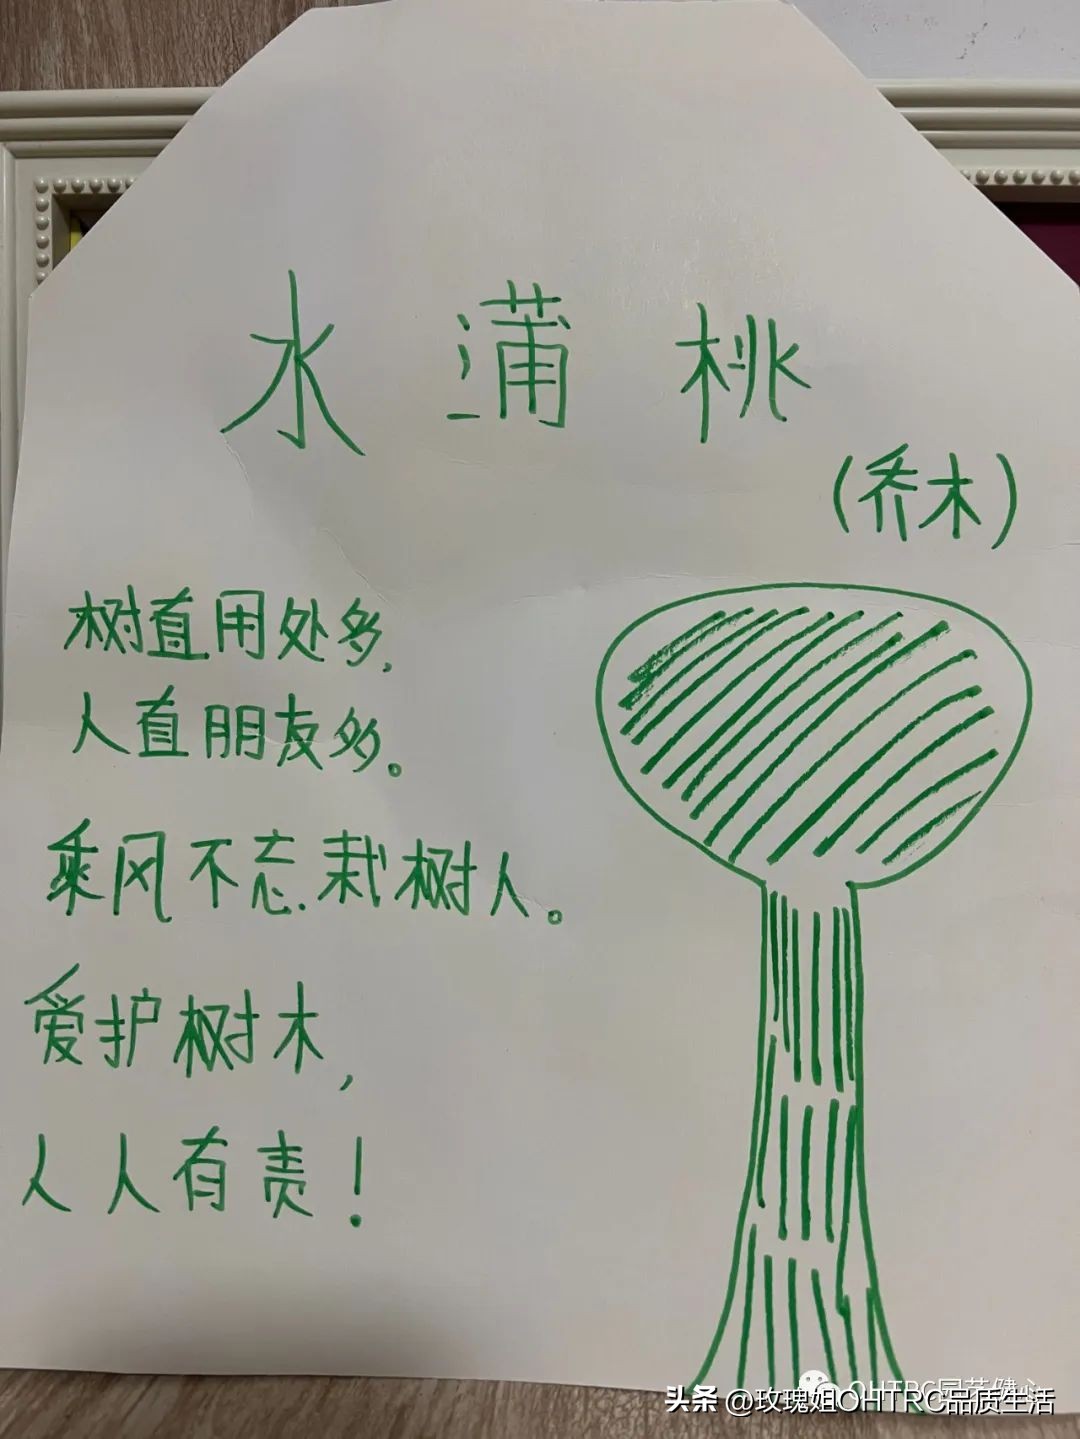 水蒲桃
(乔木)
树直用处多,
人直朋友多。
乘风不忘栽树人。
爱护树木,
人人有责!
OHTRC园艺健心
头条 @玫瑰姐OHTRC品质生活